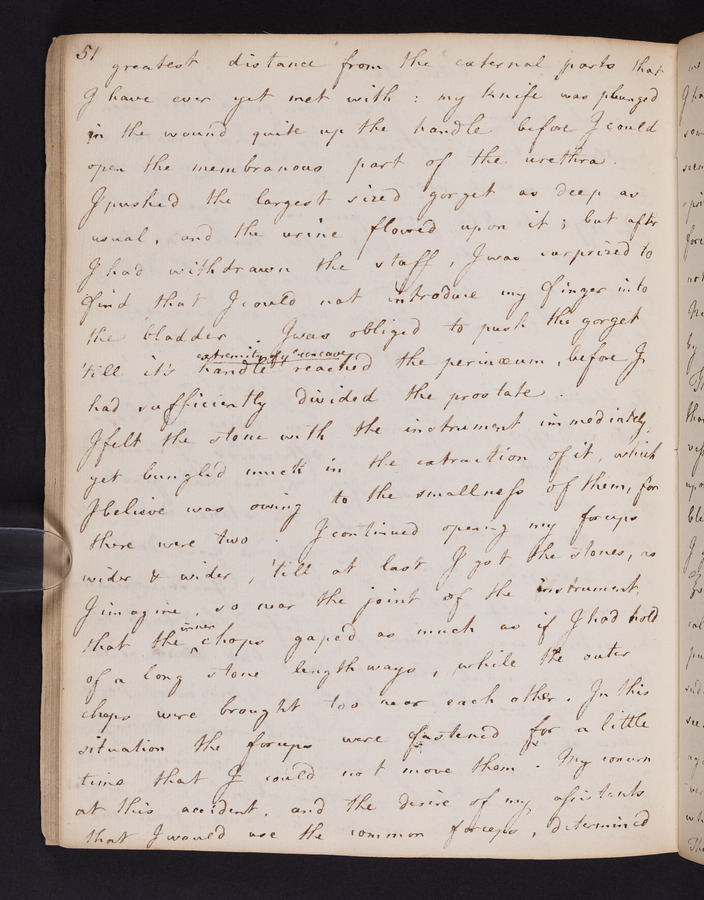 51
greatest distance from the external parts that
I have ever yet met with : my knife was plunged
in the wound quite up the handle before I could
open the membranous part of the urethra.
I pushed the largest sized gorget as deep as
usual, and the urine flowed upon it ; but after
I had withdrawn the staff, I was surprized to
find that I could not introduce my finger into
the bladder. I was obliged to push the gorget
extremity of yᵉ concave
'till it's handle reached the perinæum, before I
had sufficiently divided the prostate.
I felt the stone with the instrument immediately,
yet bungled much in the extraction of it, which
I believe was owing to the smallness of them, for
there were two. I continued opening my forceps
wider & wider, 'till at last I got the stones, as
I imagine, so near the joint of the instrument,
inner
that the ^ chops gaped as much as if I had hold
of a long stone lengthways, while the outer
chops were brought too near each other. In this
situation the forceps were fastened for a little
time that I could not move them. My concern
at this accident, and the desire of my assistants
that I would use the common forceps, determined